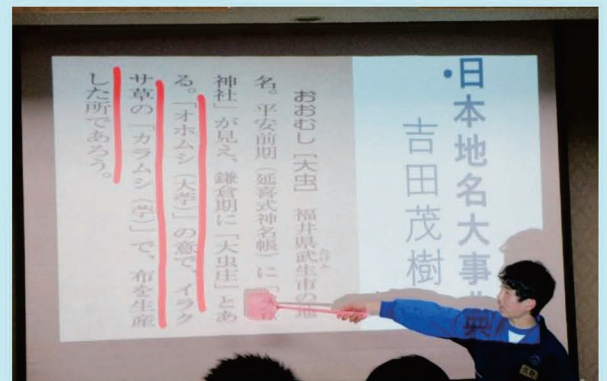 ・日本地名大事典
吉田茂樹
おおむし［大虫］ 福井県武生市の地
名。平安前期（延喜式神名帳）に「
神社」が見え、鎌倉期に「大虫庄」とあ
る。「オホムシ（大苧）」の意で、イラク
サ草の「カラムシ（苧）」で、布を生産
した所であろう。